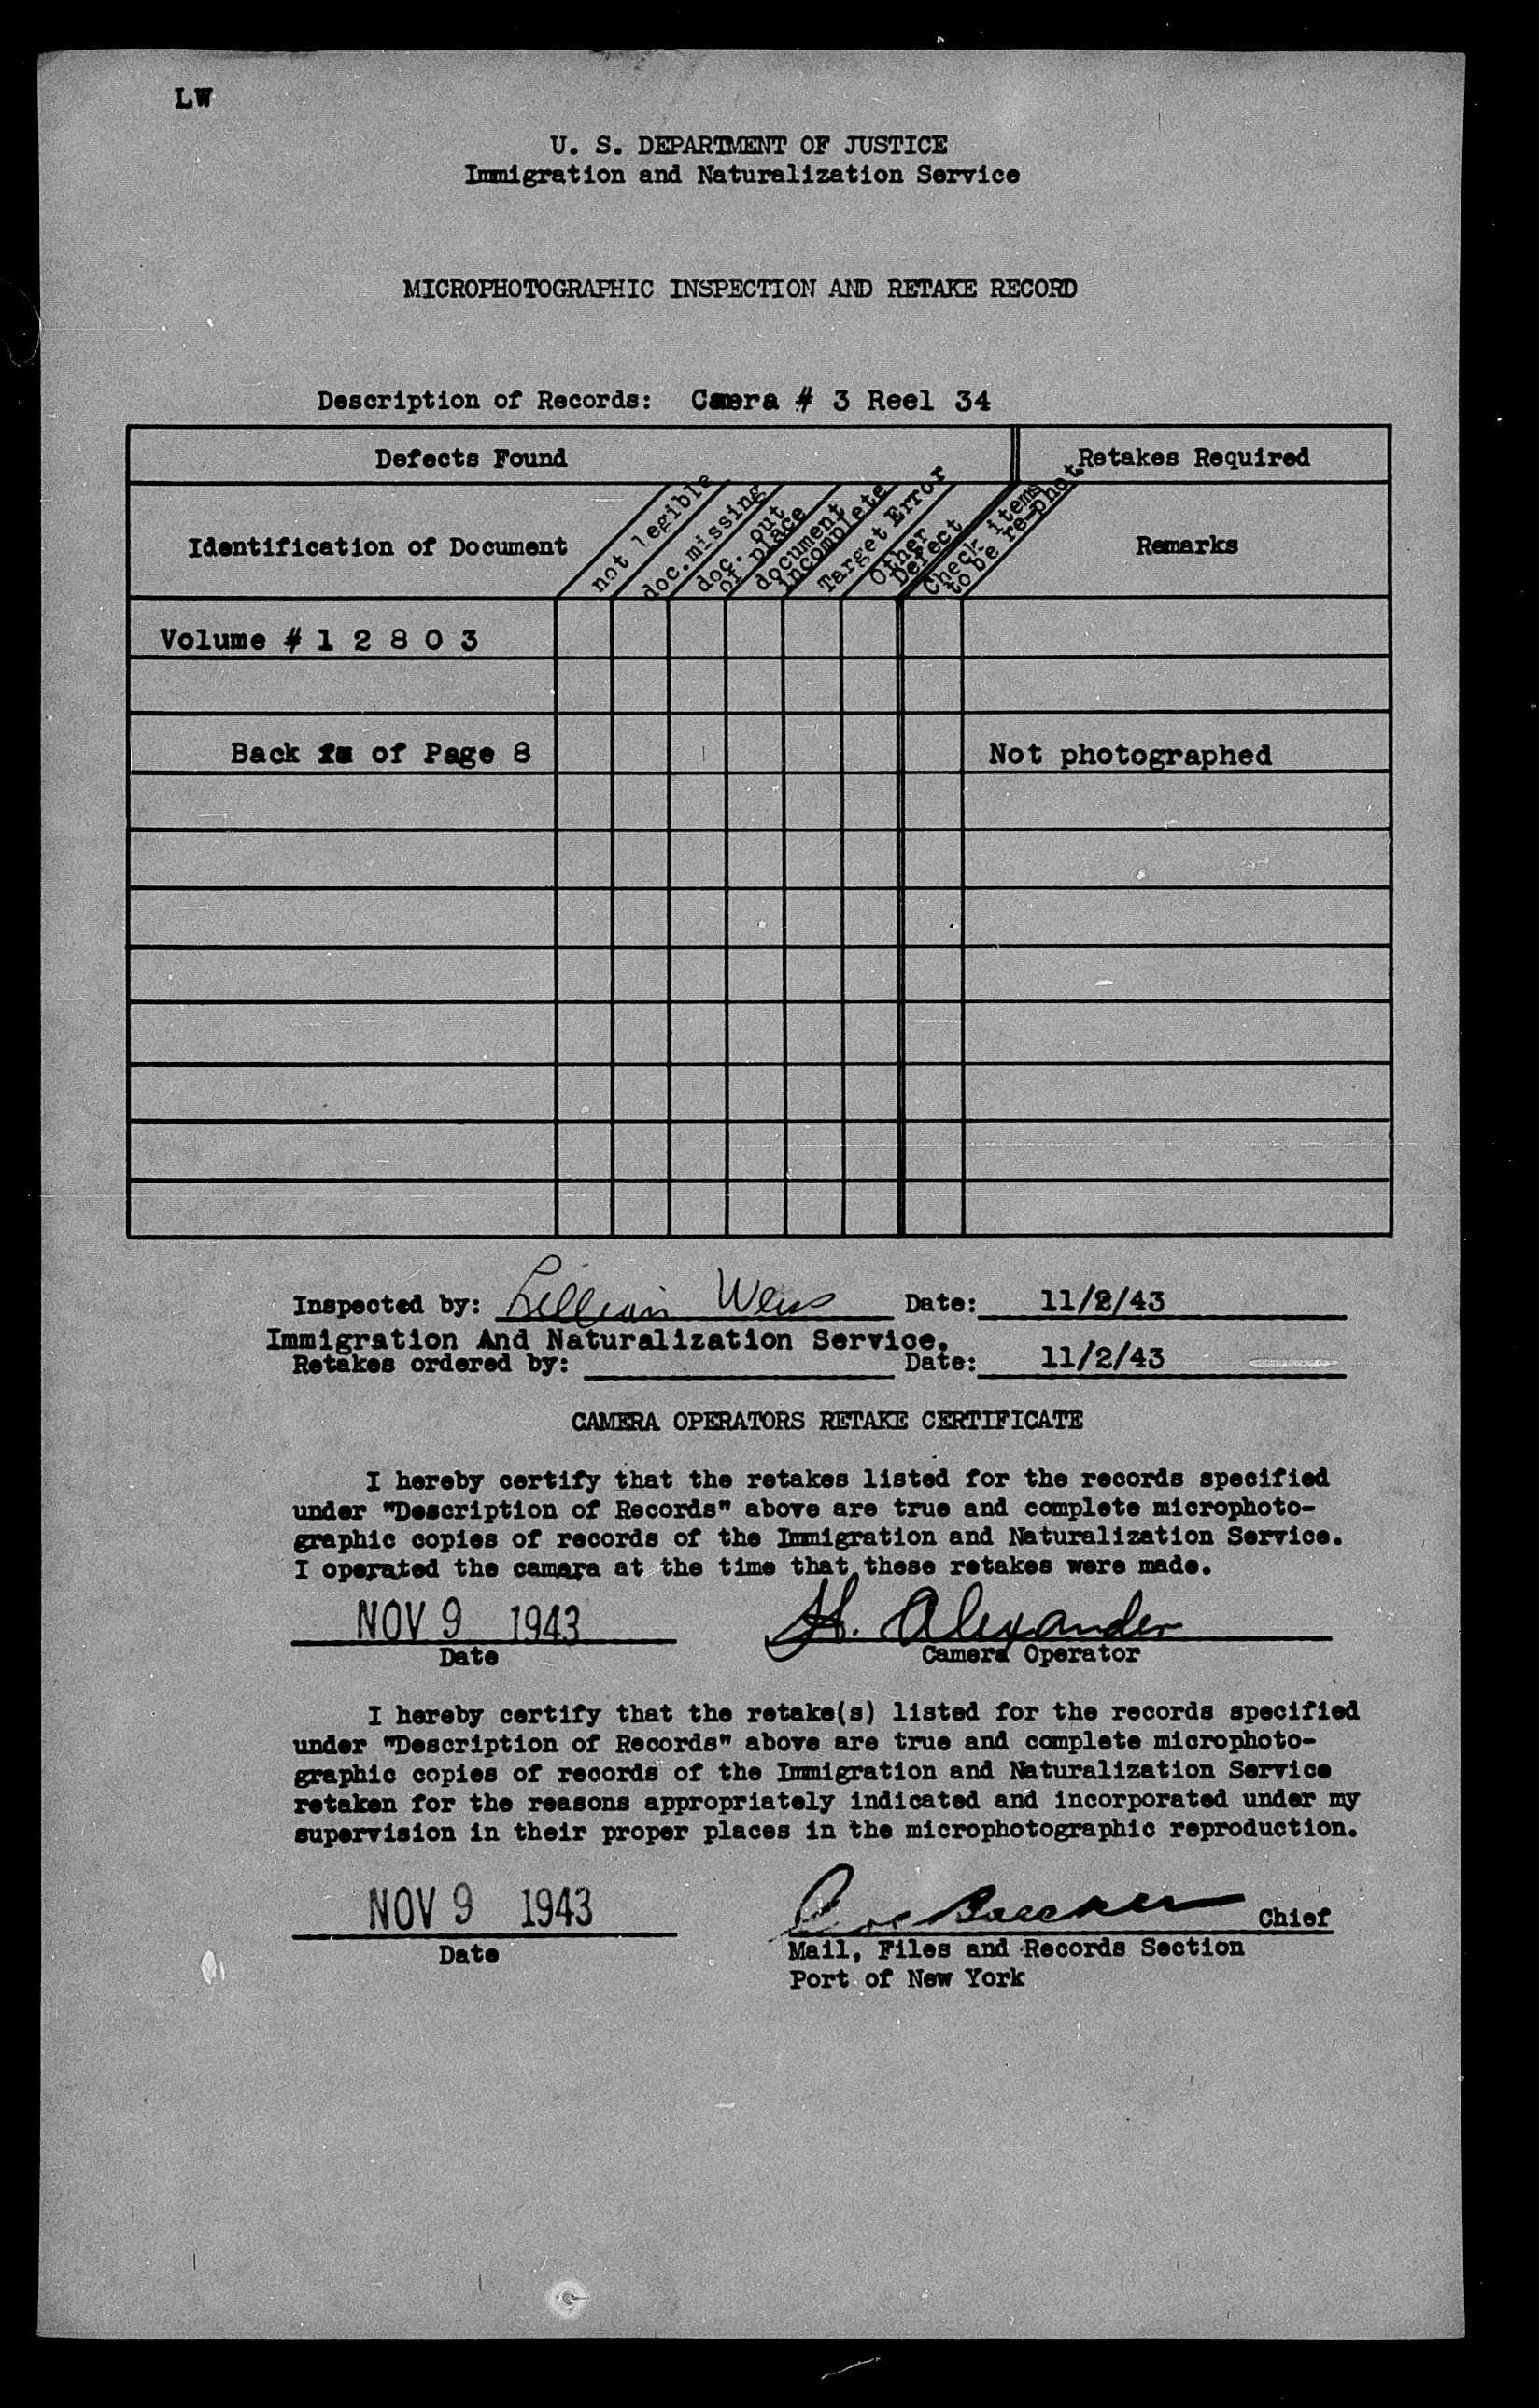 LW
U. S. DEPARTMENT OF JUSTICE
Immigration and Naturalization Service
MICROPHOTOGRAPHIC INSPECTION AND RETAKE RECORD
Description of Records: Camera # 3 Reel 34
Defects Found
Retakes Required
Identification of Document
not legible
doc.missing
doc. out
of place
document
incomplete
Target Error
Other
Defect
Check items
to be re-phot
Remarks
Volume # 1 2 8 0 3
Back of Page 8 Not photographed
Inspected by: Lillian Weiss Date: 11/2/43
Immigration And Naturalization Service.
Retakes ordered by: Date: 11/2/43
CAMERA OPERATORS RETAKE CERTIFICATE
I hereby certify that the retakes listed for the records specified
under "Description of Records" above are true and complete microphoto-
graphic copies of records of the Immigration and Naturalization Service.
I operated the camera at the time that these retakes were made.
NOV 9 1943 H. Alexander
Date Camera Operator
I hereby certify that the retake(s) listed for the records specified
under "Description of Records" above are true and complete microphoto-
graphic copies of records of the Immigration and Naturalization Service
retaken for the reasons appropriately indicated and incorporated under my
supervision in their proper places in the microphotographic reproduction.
NOV 9 1943 Chief
Date Mail, Files and Records Section
Port of New York